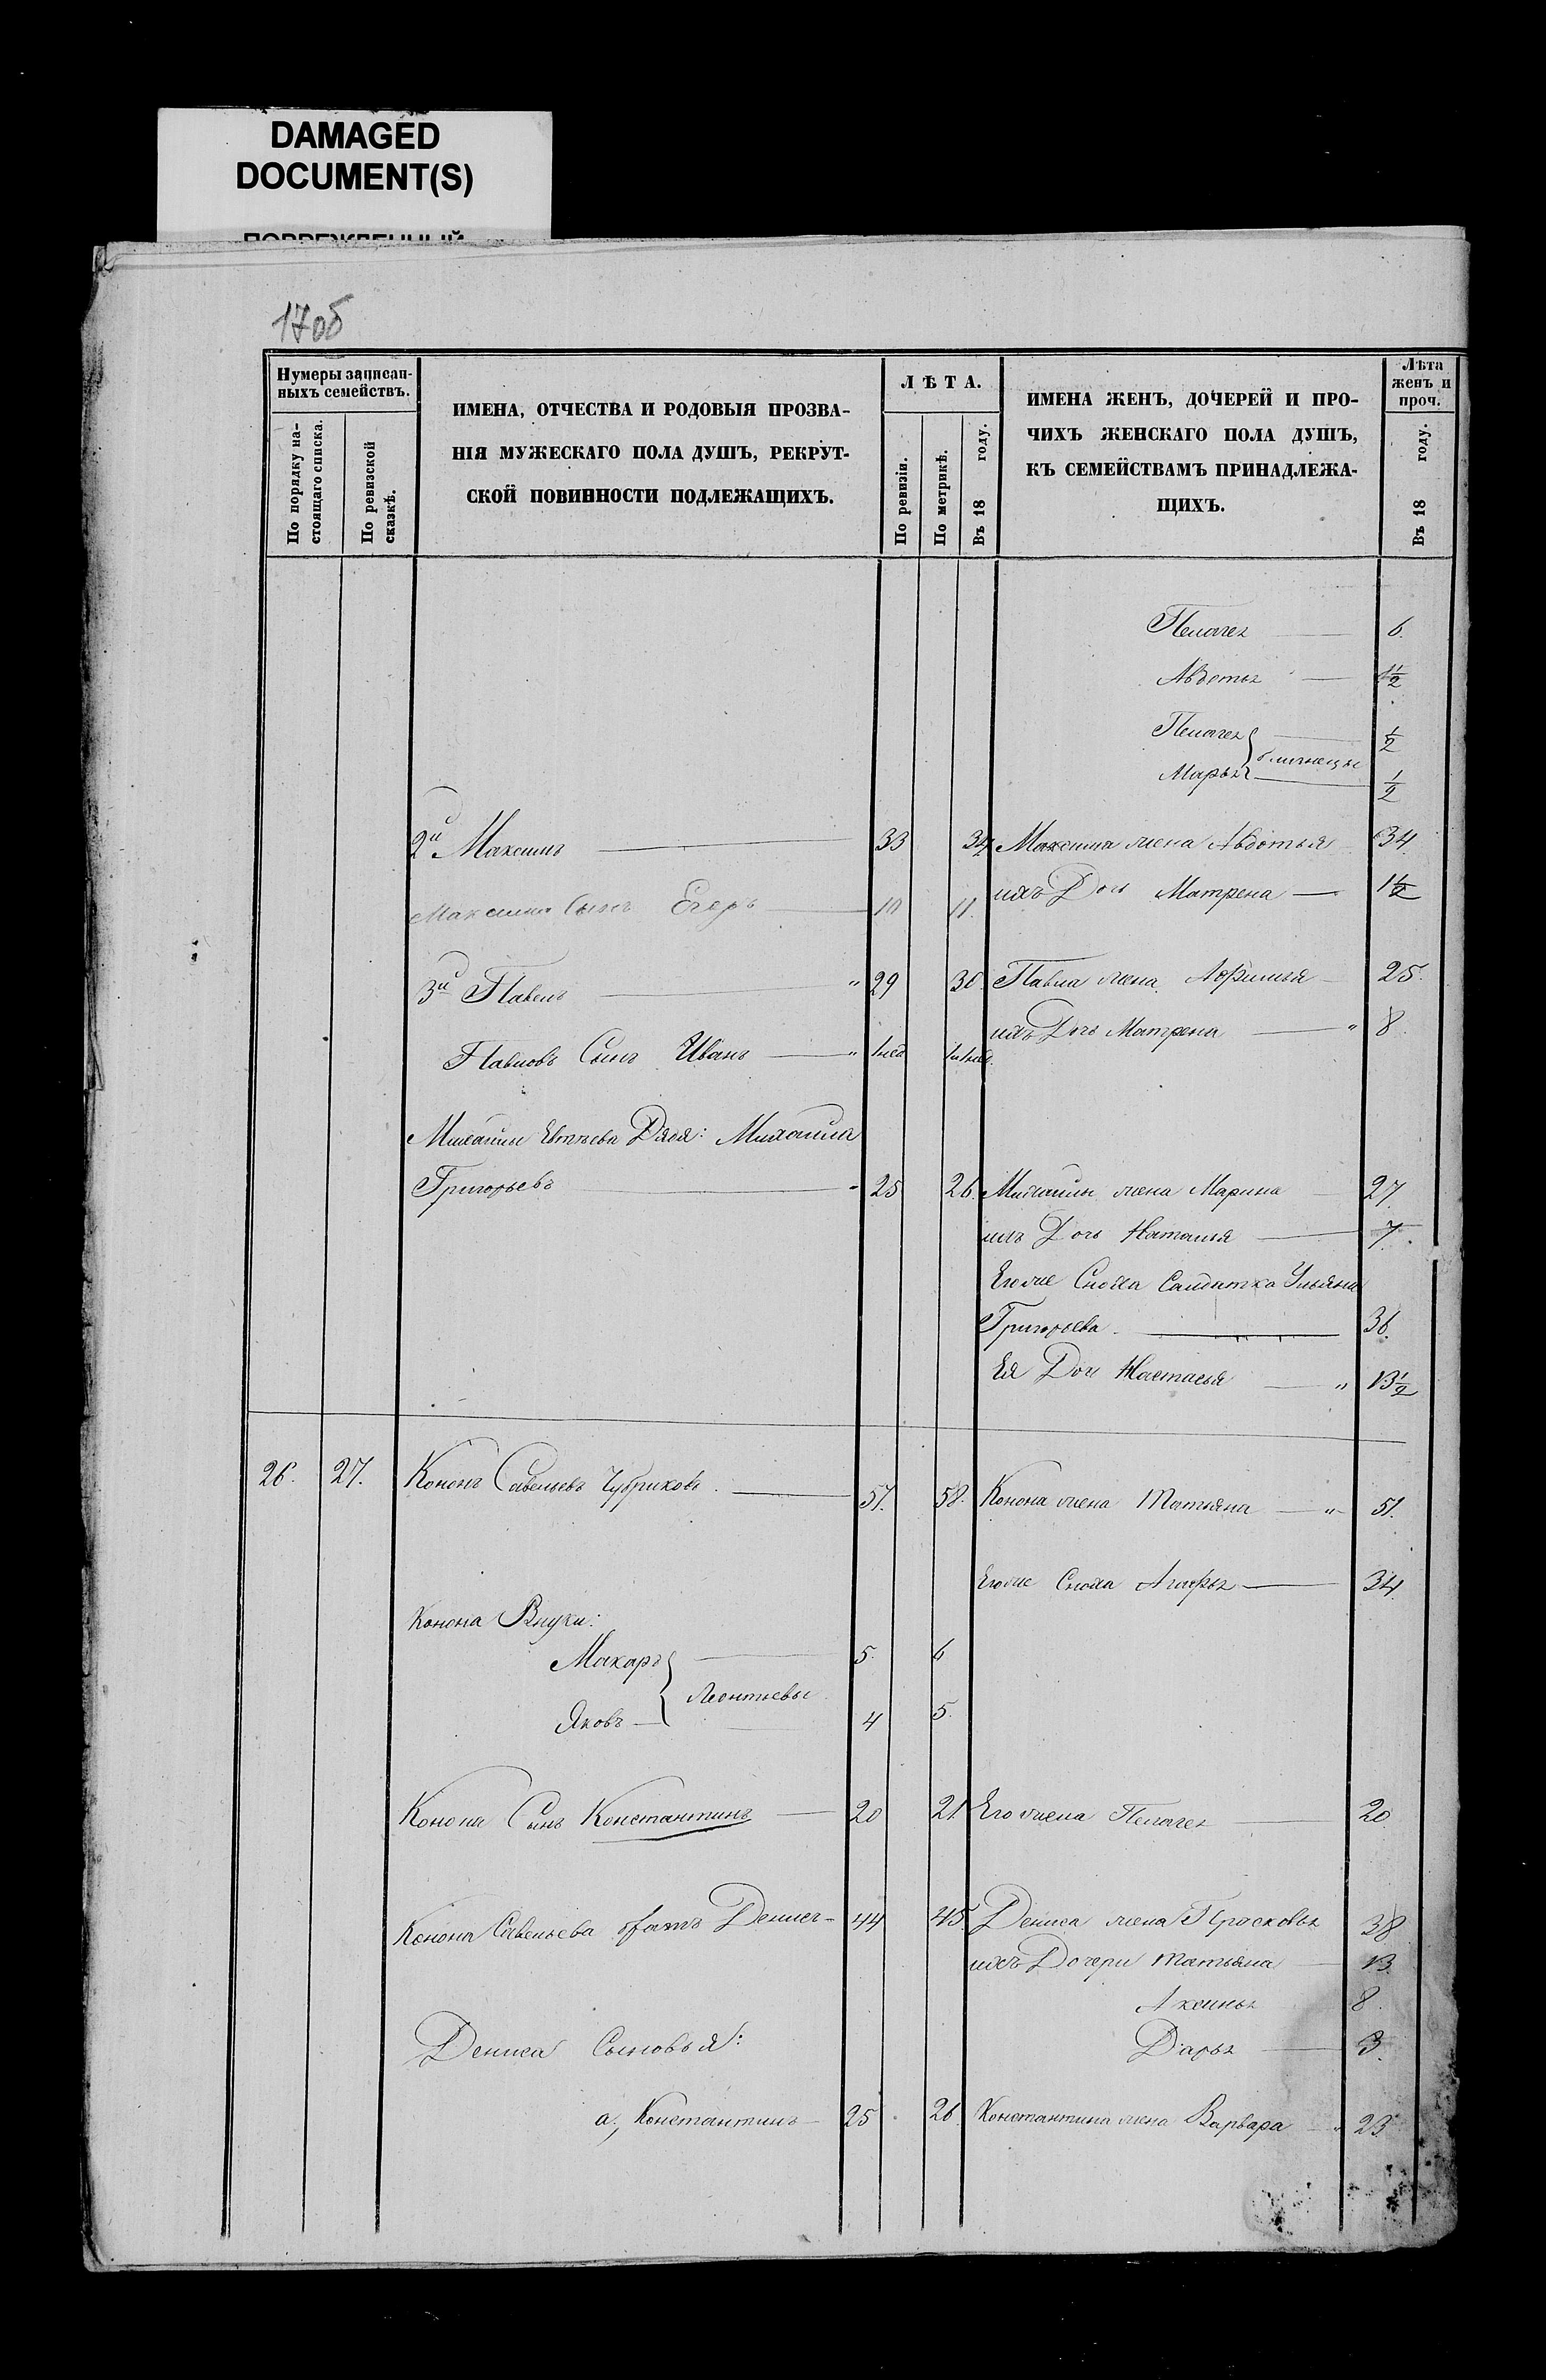 DAMAGED
DOCUMENT(S)
ПОВРЕЖДЕННЫЙ
17об
Нумеры записан-
ныхъ семействъ.
По порядку на-
стоящаго списка.
По ревизской
сказкѣ.
ИМЕНА, ОТЧЕСТВА И РОДОВЫЯ ПРОЗВА-
НІЯ МУЖЕСКАГО ПОЛА ДУШЪ, РЕКРУТ-
СКОЙ ПОВИННОСТИ ПОДЛЕЖАЩИХЪ.
ЛѢТА.
По ревизіи.
По метрикѣ.
Въ 18 году.
ИМЕНА ЖЕНЪ, ДОЧЕРЕЙ И ПРО-
ЧИХЪ ЖЕНСКАГО ПОЛА ДУШЪ,
КЪ СЕМЕЙСТВАМЪ ПРИНАДЛЕЖА-
ЩИХЪ.
Лѣта
женъ и
проч.
Въ 18 году.
Пелагея 6.
Авдотья 1½
Пелагея ½
близнецы
Марья ½
2й Максимъ 33 34 Максима жена Авдотья 34
Максима Сынъ Егоръ 10 11. ихъ Дочь Матрена 1½
3й Павелъ 29 30. Павла жена 25.
Павловъ Сынъ Иванъ ихъ Дочь Матрена 8
Михаилы Евтѣева Дядя: Михаила
Григорьевъ 25 26. Михаилы жена Марина 27.
ихъ Дочь Наталья 7.
Егоже Сноха Салдатка Ульяна
Григорьева 36.
Ея Дочь Настасья 13½
26. 27. Кононъ Савельевъ Чубриковъ. 57. 58. Конона жена Татьяна 51.
Егоже Сноха Агафья 34.
Конона Внуки:
Макаръ 5. 6
Леонтьевы
Яковъ 4 5.
Конона Сынъ Константинъ 20 21. Его жена Пелагея 20
Конона Савельева братъ Денисъ 44 45. Дениса жена Прасковья 38
ихъ Дочери Татьяна 13.
Аксинья 8.
Дениса Сыновья: Дарья 3.
а, Константинъ 25 26. Константина жена Варвара 23.